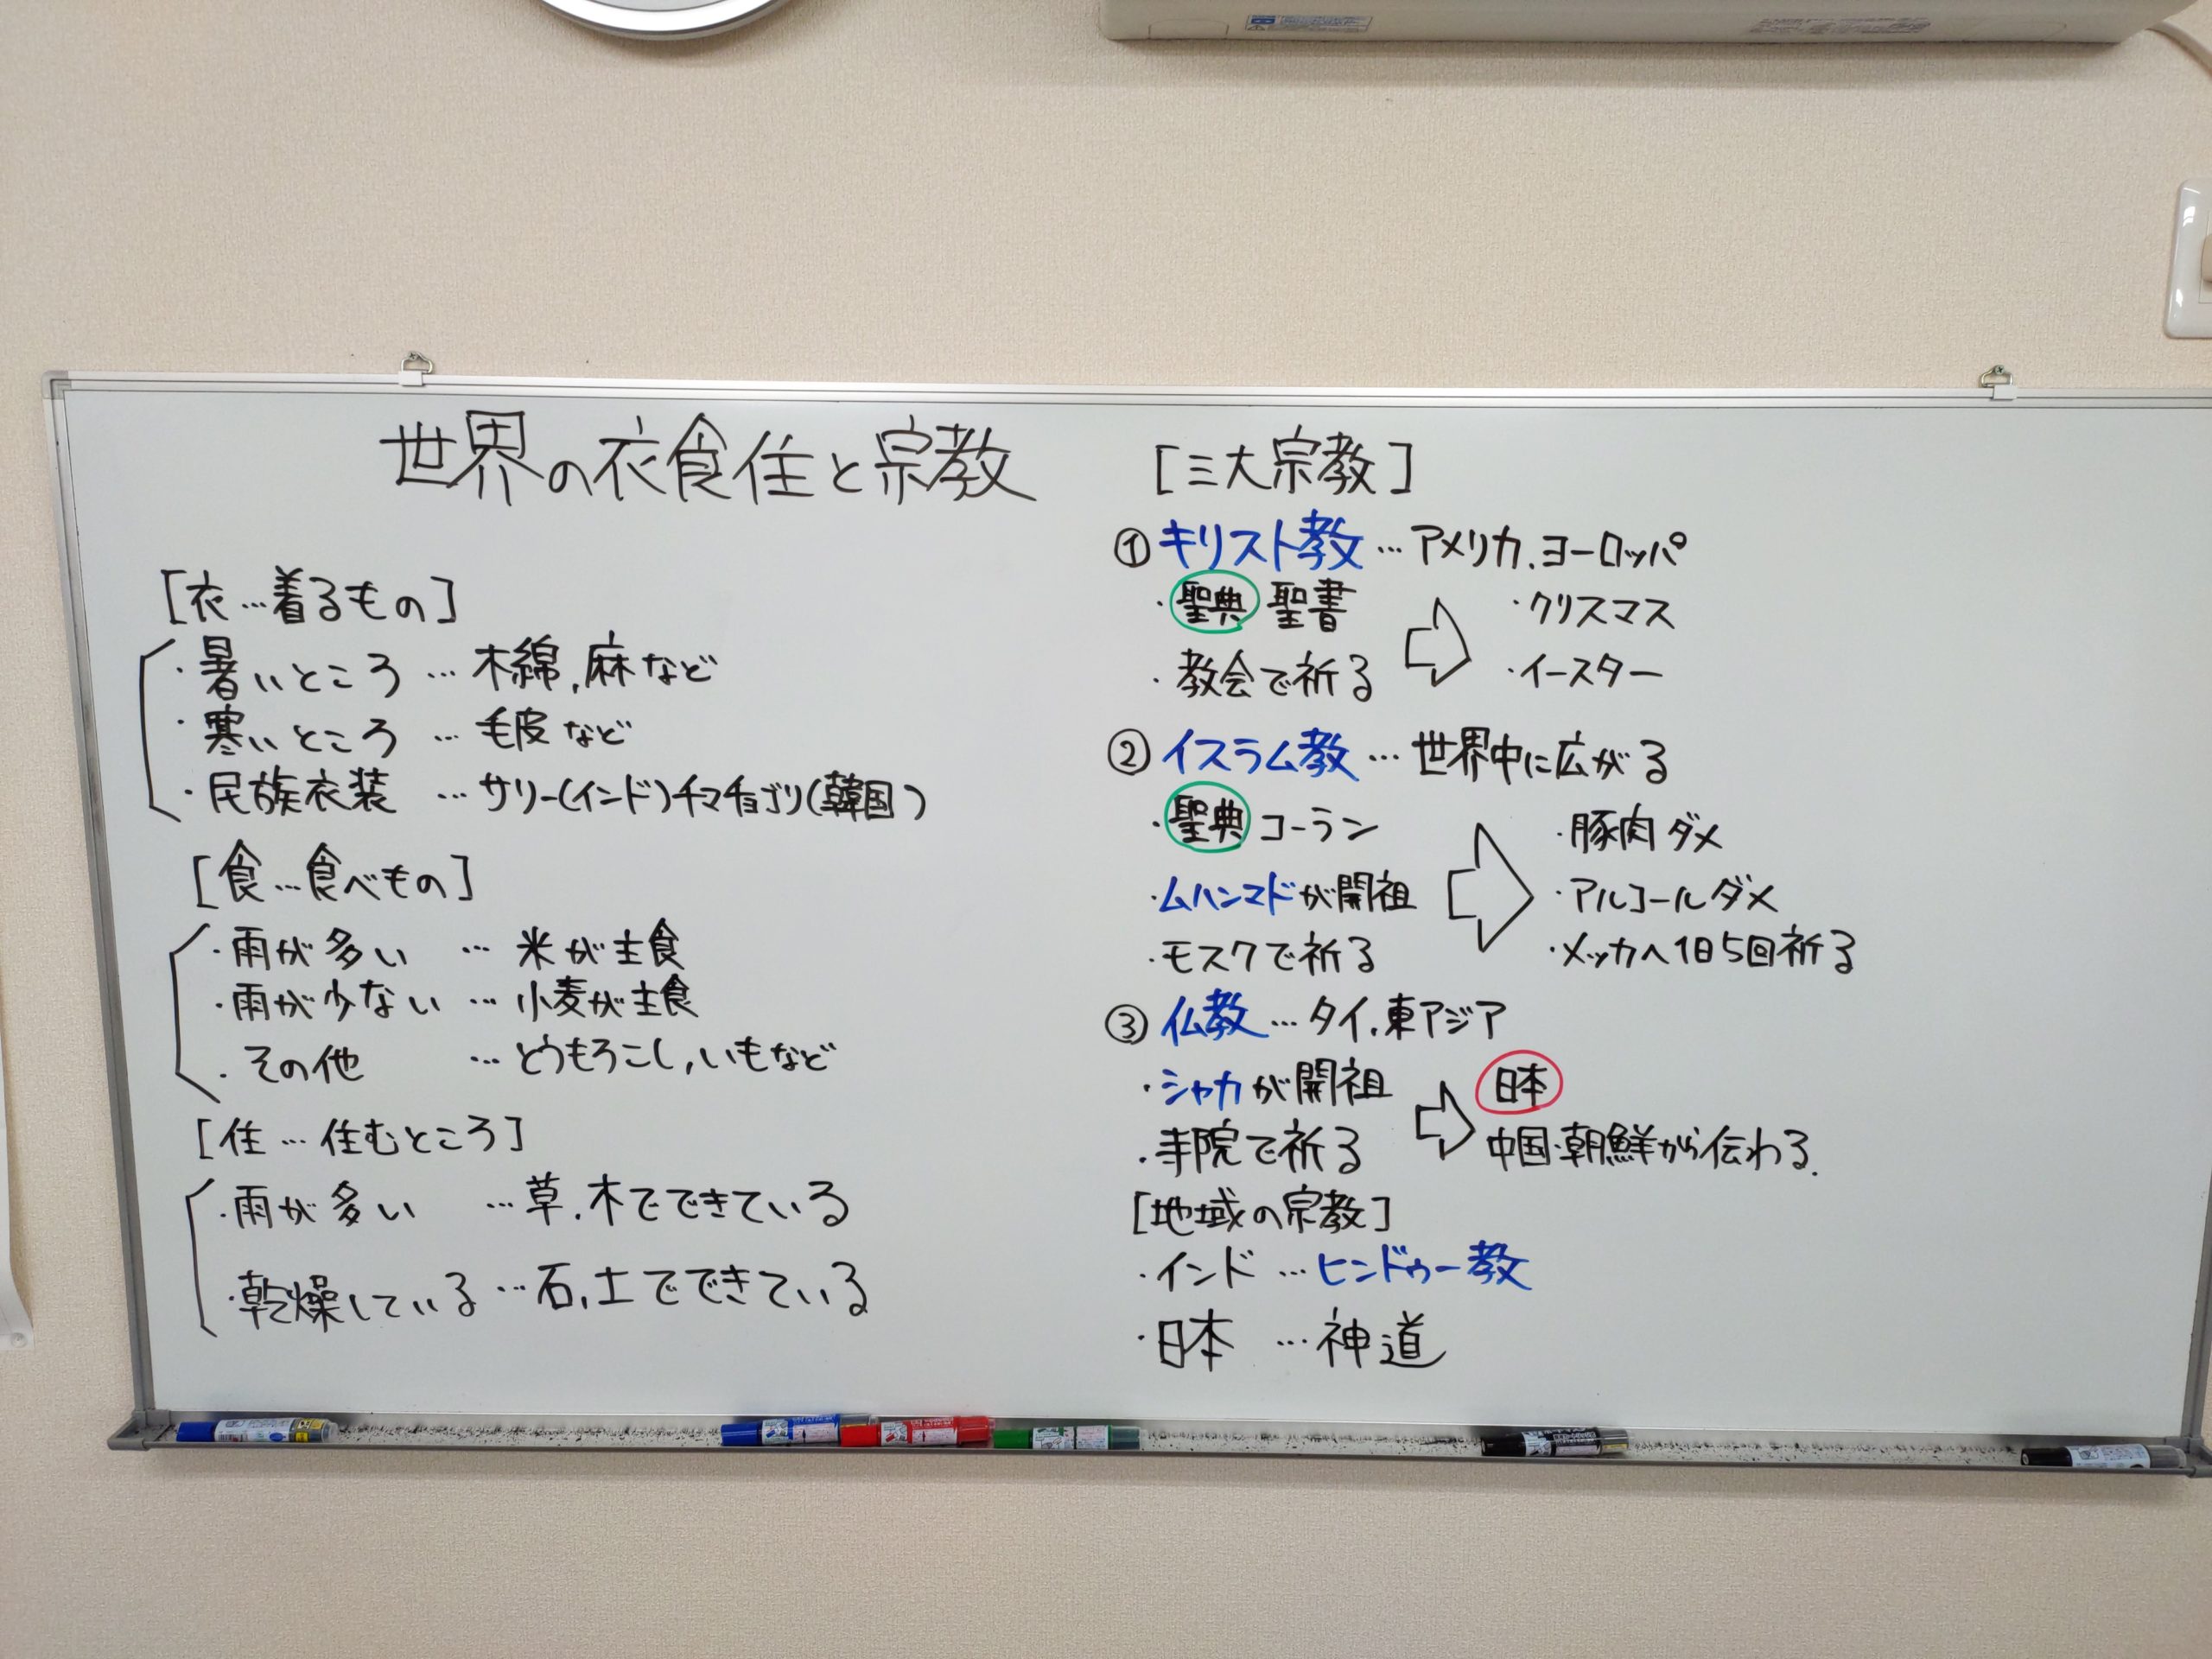 世界の衣食住と宗教
[衣…着るもの]
・暑いところ … 木綿,麻など
・寒いところ … 毛皮など
・民族衣装 … サリー(インド)チマチョゴリ(韓国)
[食…食べもの]
・雨が多い … 米が主食
・雨が少ない … 小麦が主食
・その他 … とうもろこし,いもなど
[住…住むところ]
・雨が多い …草,木でできている
・乾燥している…石,土でできている
[三大宗教]
①キリスト教…アメリカ,ヨーロッパ
・聖典 聖書
・教会で祈る
⇨
・クリスマス
・イースター
②イスラム教…世界中に広がる
・聖典 コーラン
・ムハンマドが開祖
・モスクで祈る
⇨
・豚肉ダメ
・アルコールダメ
・メッカへ1日5回祈る
③仏教…タイ,東アジア
・シャカが開祖
・寺院で祈る
⇨
日本
中国・朝鮮から伝わる.
[地域の宗教]
・インド …ヒンドゥー教
・日本 …神道